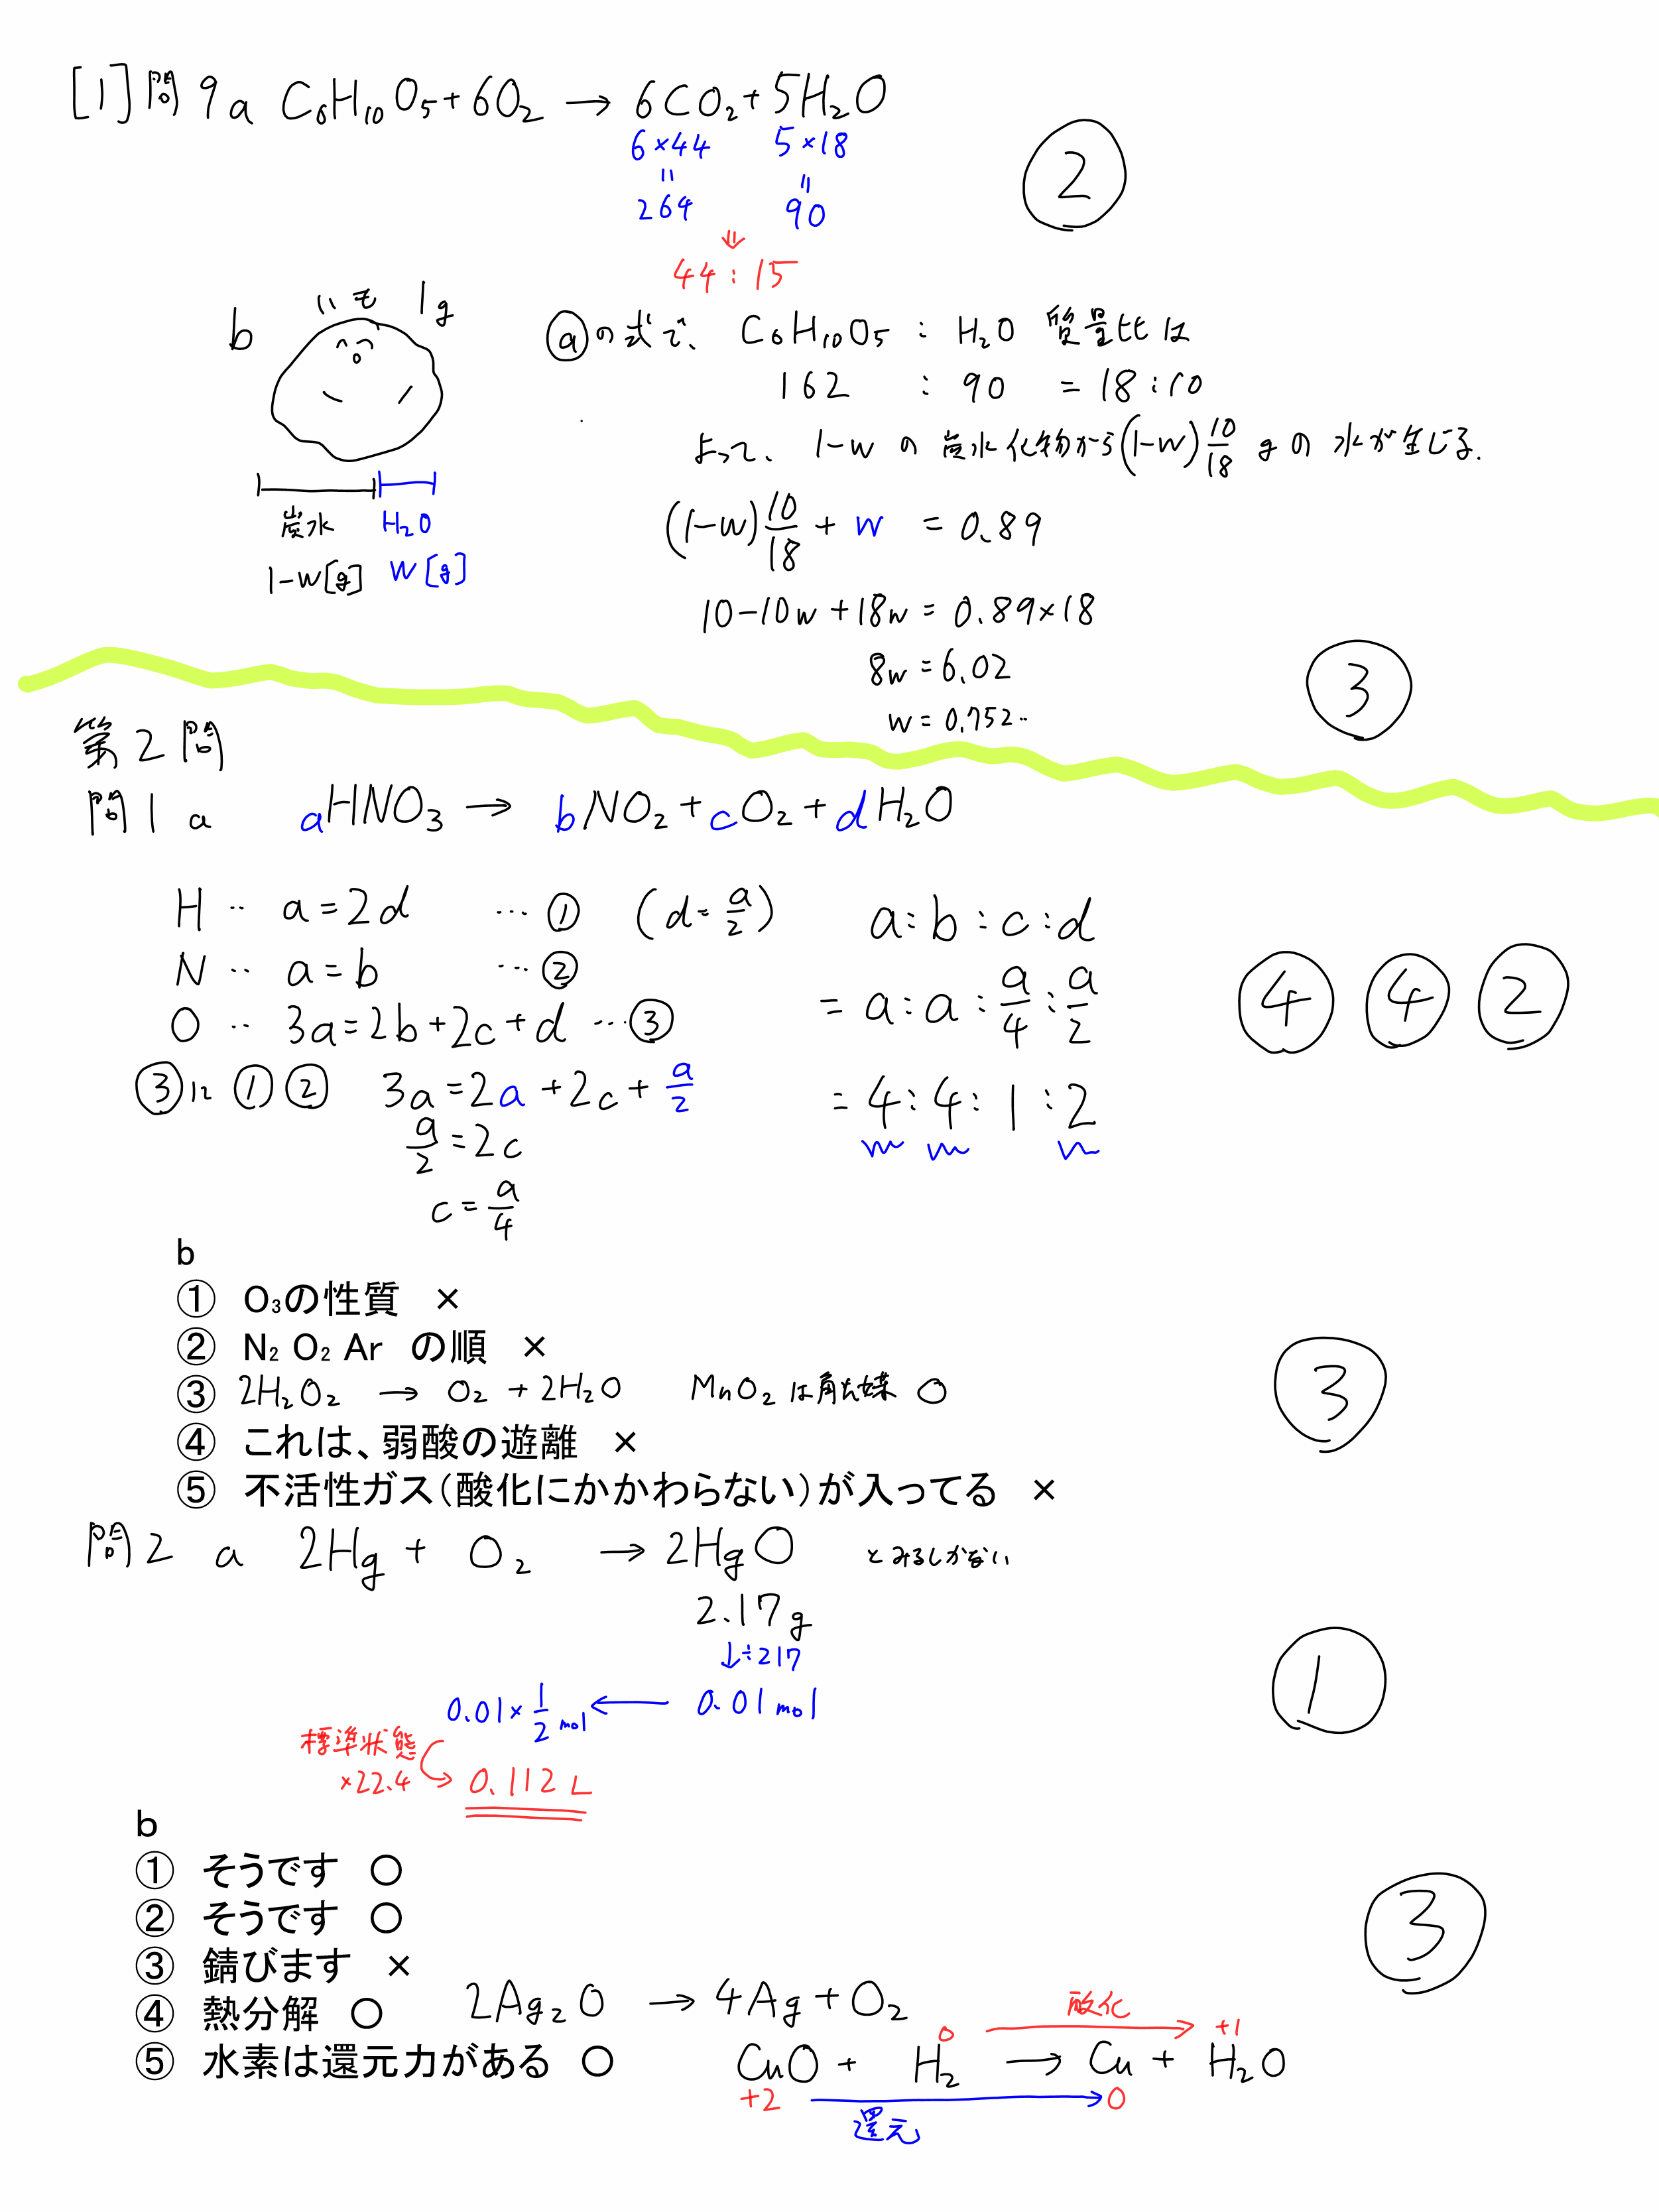 [1]問9a C₆H₁₀O₅+6O₂ → 6CO₂+5H₂O
6×44 5×18
= =
264 90
⇓
44:15
②
b いも 1g
炭水 H₂O
1-w[g] w[g]
ⓐの式で、 C₆H₁₀O₅ : H₂O 質量比は
162 : 90 = 18:10
よって、1-w の 炭水化物から(1-w)10/18 g の 水が生じる.
(1-w)10/18 + w = 0.89
10-10w+18w = 0.89×18
8w = 6.02
w = 0.752…
③
第2問
問1 a aHNO₃ → bNO₂+cO₂+dH₂O
H ‥ a=2d … ① (d=a/2)
N ‥ a=b … ②
O ‥ 3a=2b+2c+d … ③
③に①② 3a=2a+2c+a/2
a/2=2c
c=a/4
a:b:c:d
= a:a:a/4:a/2
= 4:4:1:2
④ ④ ②
b
① O₃の性質 ×
② N₂ O₂ Ar の順 ×
③ 2H₂O₂ → O₂ + 2H₂O MnO₂は触媒 ○
④ これは、弱酸の遊離 ×
⑤ 不活性ガス(酸化にかかわらない)が入ってる ×
③
問2 a 2Hg + O₂ → 2HgO とみるしかない
2.17g
↓÷217
0.01×1/2 mol ← 0.01mol
標準状態
×22.4 0.112L
①
b
① そうです ○
② そうです ○
③ 錆びます ×
④ 熱分解 ○ 2Ag₂O → 4Ag+O₂
⑤ 水素は還元力がある ○ CuO + H₂ → Cu + H₂O
0 酸化 +1
+2 還元 0
③